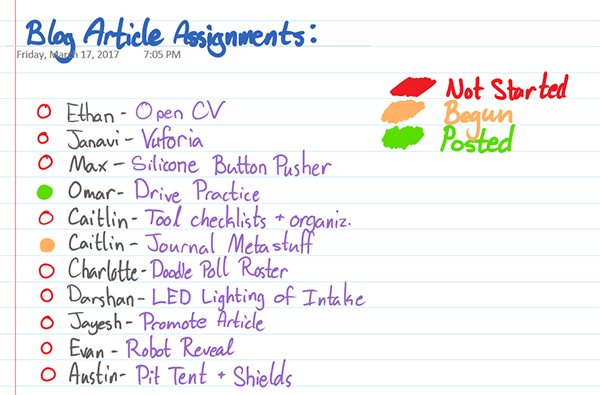 Blog Article Assignments:
Friday, March 17, 2017 7:05 PM
Not Started
Begun
Posted
Ethan - Open CV
Janavi - Vuforia
Max - Silicone Button Pusher
Omar - Drive Practice
Caitlin - Tool checklists + organiz.
Caitlin - Journal Metastuff
Charlotte - Doodle Poll Roster
Darshan - LED Lighting of Intake
Jayesh - Promote Article
Evan - Robot Reveal
Austin - Pit Tent + Shields